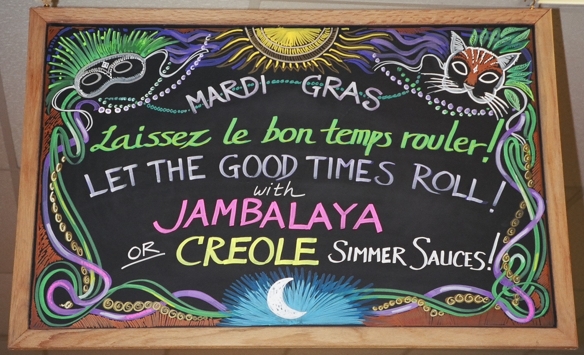 MARDI GRAS
Laissez le bon temps rouler!
LET THE GOOD TIMES ROLL!
with
JAMBALAYA
OR CREOLE SIMMER SAUCES!